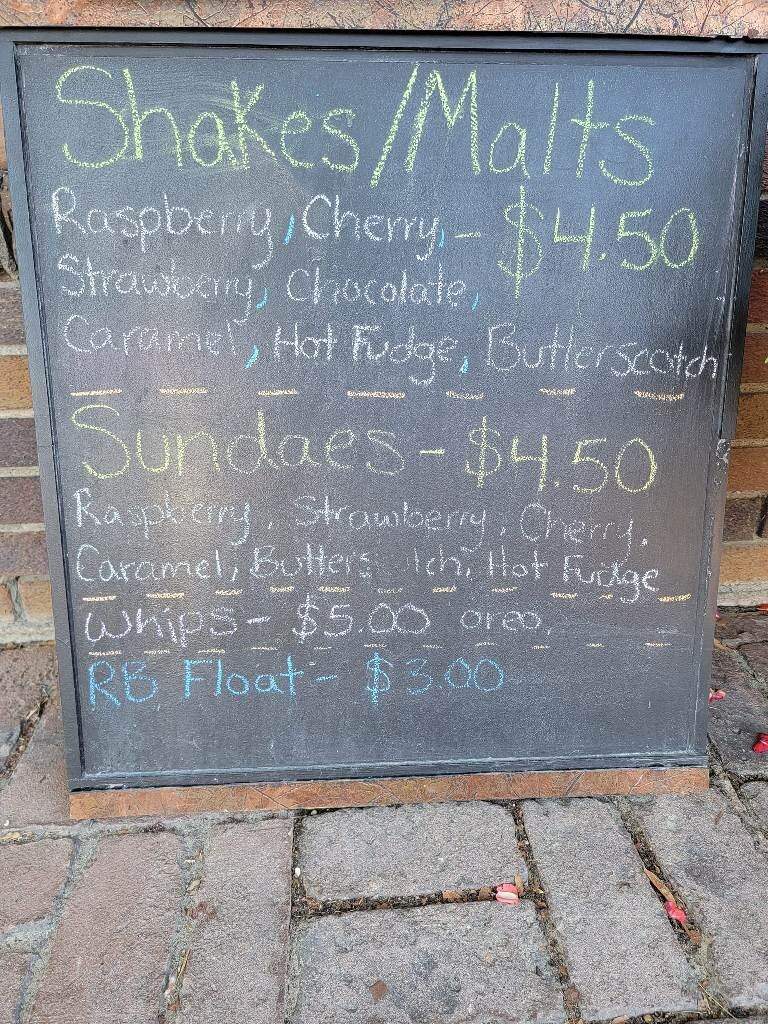 Shakes/Malts
Raspberry, Cherry, - $4.50
Strawberry, Chocolate,
Caramel, Hot Fudge, Butterscotch
Sundaes - $4.50
Raspberry, Strawberry, Cherry,
Caramel, Butters tch, Hot Fudge
Whips - $5.00 oreo,
RB Float - $3.00